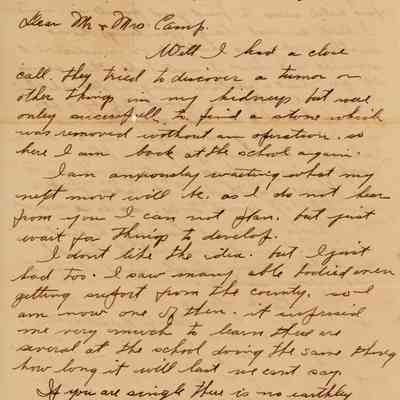 Dear Mr & Mrs Camp.
Well I had a close
call. they tried to discover a tumor or
other things in my kidneys but were
only successfull to find a stone which
was removed without an operation. so
here I am back at the school again.
I am anxiously waiting what my
next move will be. as I do not hear
from you I can not plan. but just
wait for things to develop.
I dont like the idea. but I just
had too. I saw many able bodied men
getting support from the county. so I
am now one of them. it surprised
me very much to learn there are
several at the school doing the same thing
how long it will last we cant say.
If you are single there is no earthley